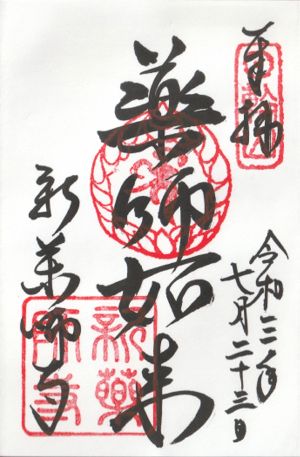 奉拝
令和三年
七月二十三日
薬師如来
新薬師寺
新薬師寺